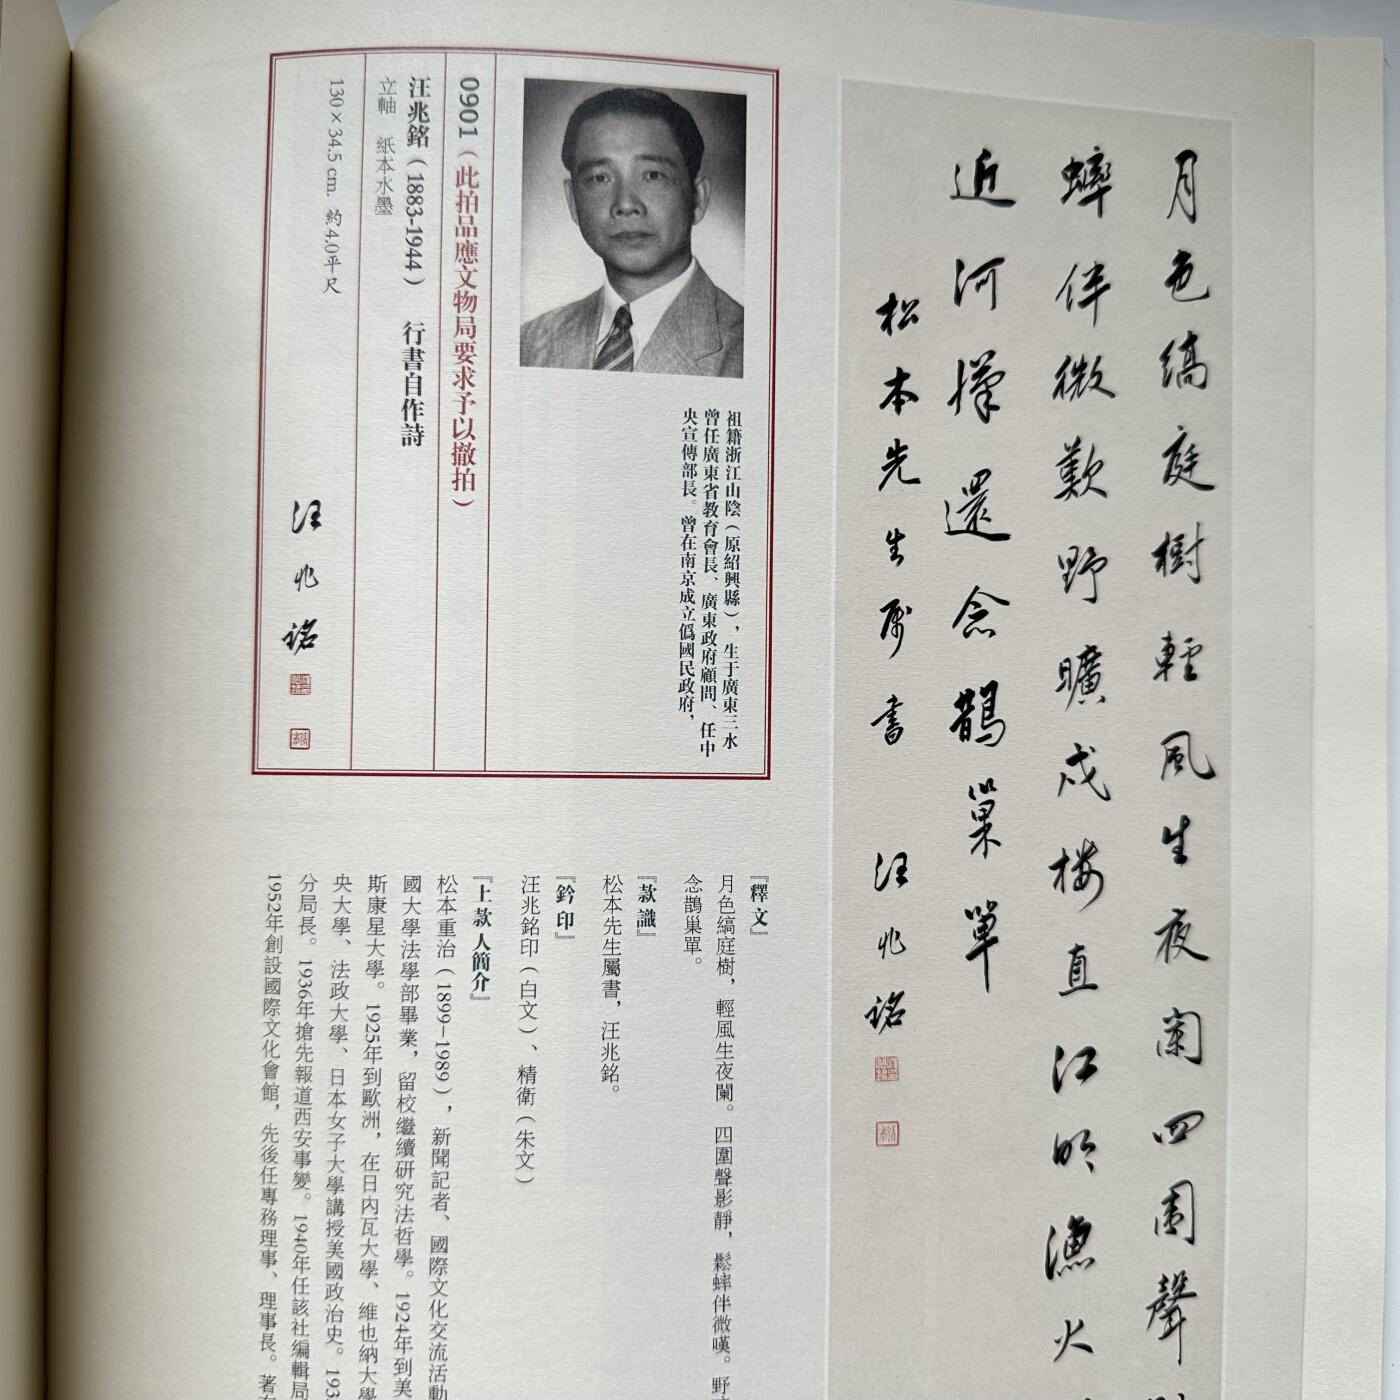 月色縞庭樹輕風生夜闌四圍聲
蟀伴微歎野曠戍楼直江明漁火
近河還念鵲巢單
松本先生属書 汪兆銘
祖籍浙江山陰（原紹興縣），生于廣東三水
曾任廣東省教育會長、廣東政府顧問、任中
央宣傳部長。曾在南京成立僞國民政府，
0901（此拍品應文物局要求予以撤拍）
汪兆銘（1883-1944） 行書自作詩
立軸 紙本水墨
130×34.5 cm. 約4.0平尺
汪兆銘
『釋文』
月色縞庭樹，輕風生夜闌。四圍聲影靜，鬆蟀伴微嘆。野
念鵲巢單。
『款識』
松本先生屬書，汪兆銘。
『鈐印』
汪兆銘印（白文）、精衛（朱文）
『上款人簡介』
松本重治（1899–1989），新聞記者、國際文化交流活動
國大學法學部畢業，留校繼續研究法哲學。1924年到美
斯康星大學。1925年到歐洲，在日內瓦大學、維也納大學
央大學、法政大學、日本女子大學講授美國政治史。193
分局長。1936年搶先報道西安事變。1940年任該社編輯局
1952年創設國際文化會館，先後任專務理事、理事長。著